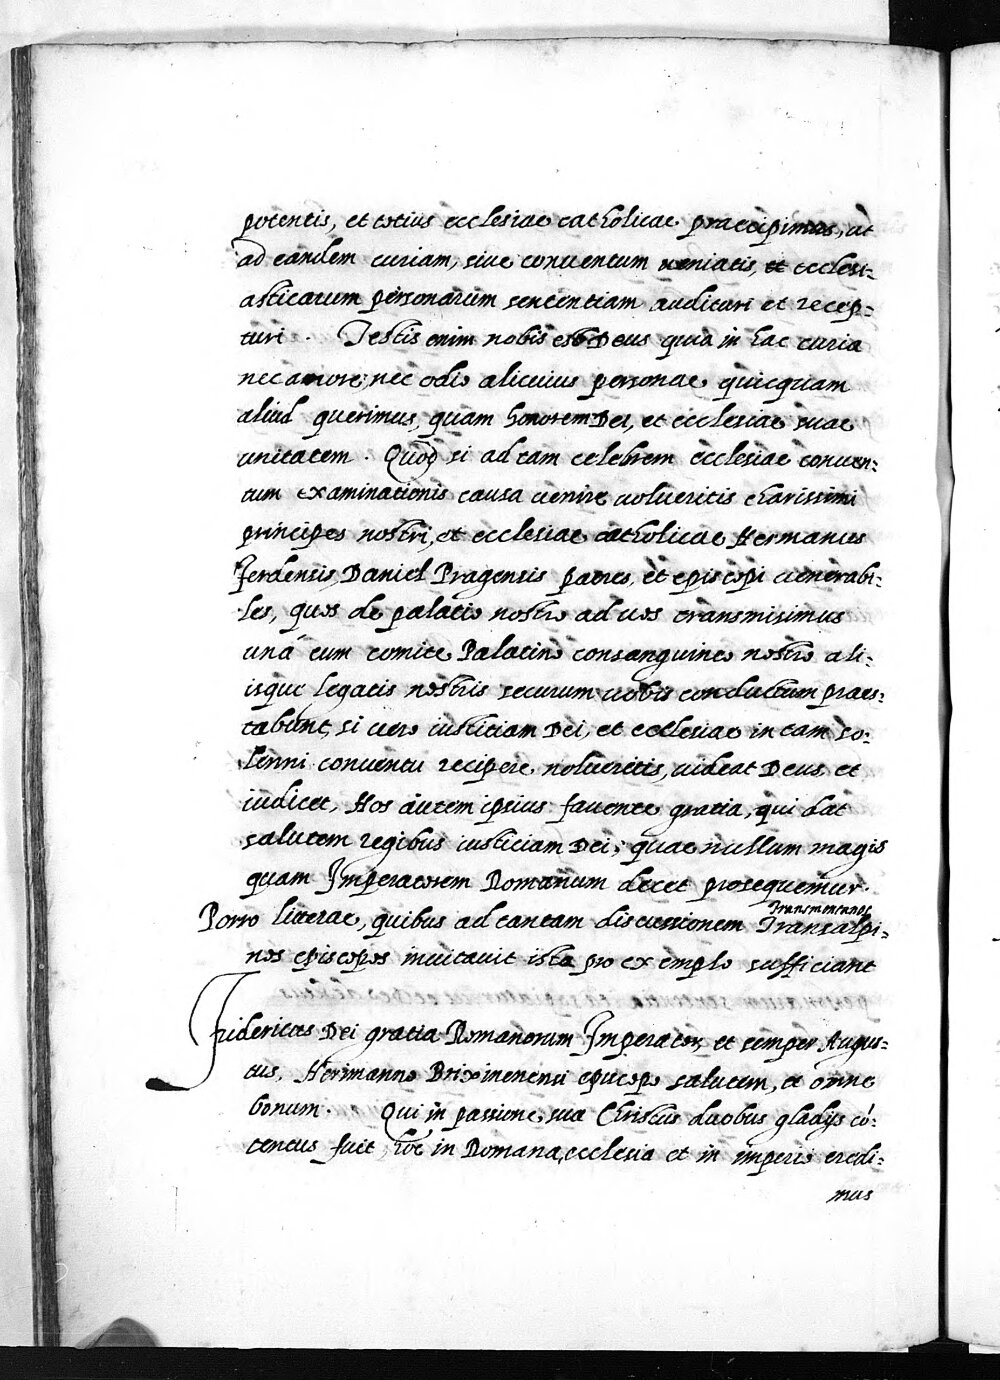 potentis, et totius ecclesiae catholicae praecipimus, ut
ad eandem curiam, siue conuentum ueniatis, et ecclesi=
asticarum personarum sententiam audituri et recep=
turi. Testis enim nobis est Deus quia in hac curia
nec amore nec odio alicuius personae quicquam
aliud querimus, quam honorem Dei, et ecclesiae suae
unitatem. Quod si ad tam celebrem ecclesiae conuen=
tum examinationis causa uenire uolueritis charissimi
principes nostri, et ecclesiae catholicae Hermanus
Ferdensis, Daniel Pragensis patres, et episcopi uenerabi=
les, quos de palatio nostro ad uos transmisimus
unà cum comite Palatino consanguineo nostro ali=
isque legatis nostris securum uobis conductum praes=
tabunt, si uero iustitiam Dei, et ecclesiae in tam so=
lenni conuentu recipere nolueritis, uideat Deus et
iudicet, Nos autem ipsius fauente gratia, qui dat
salutem regibus iusticiam Dei, quae nullum magis
quam Imperatorem Romanum decet prosequemur.
Transmontanos
Porro litterae, quibus ad tantam discussionem Transalpi=
nos episcopos inuitauit ista pro exemplo sufficiant
Fridericus Dei gratia Romanorum Imperator, et semper Augus=
tus, Herimanno Brixinensi episcopo salutem, et omne
bonum. Qui in passione sua Christus duobus gladijs cō=
tentus fuit, hoc in Romana ecclesia et in imperio credi=
mus